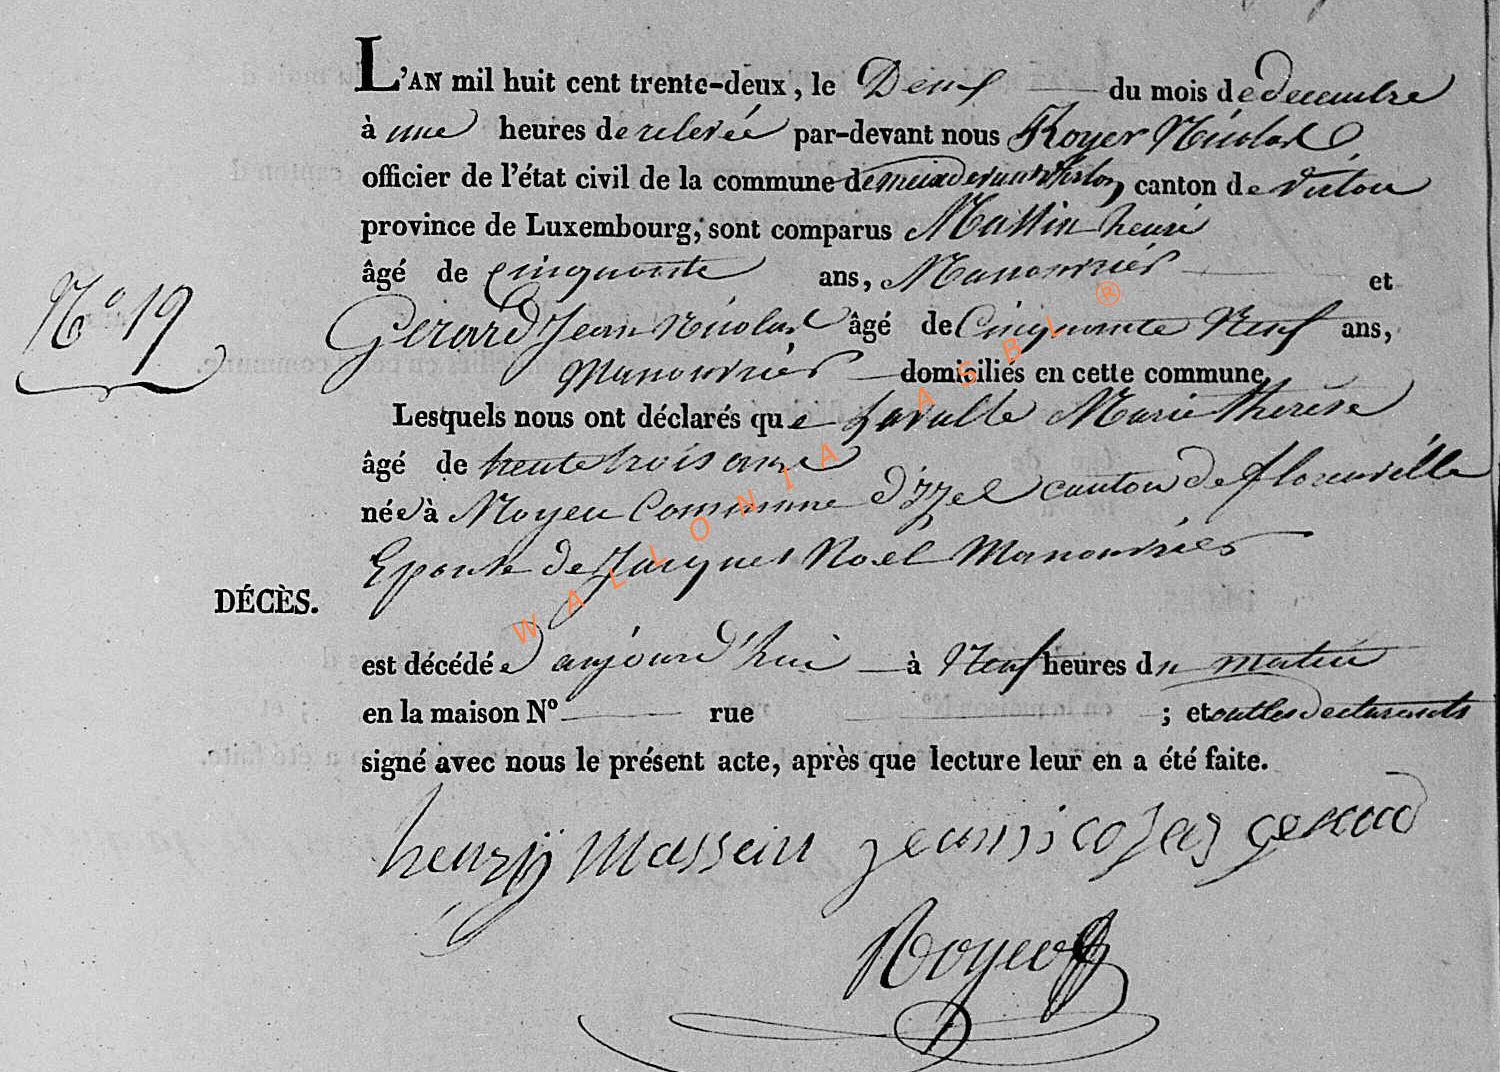 L'AN mil huit cent trente-deux, le Deux du mois de decembre
à une heures de relevée par-devant nous Royer Nicolas
officier de l'état civil de la commune de meix devant Virton, canton de Virton
province de Luxembourg, sont comparus Massin henri
âgé de cinquante ans, Manouvrier et
N° 19
Gerard Jean Nicolas âgé de Cinquante Neuf ans,
Manouvrier domiciliés en cette commune,
Lesquels nous ont déclarés que Lavalle Marie therese
âgé de trente trois ans
née à Moyen Commune d'izel canton de florenville
Epouse de Jacques Noel Manouvrier
DÉCÈS.
est décédée aujourd'hui à Neuf heures du matin
en la maison N° rue ; et ont les declarants
signé avec nous le présent acte, après que lecture leur en a été faite.
henry massein jean nicolas gerard
Royer
WALLONIA ASBL ®